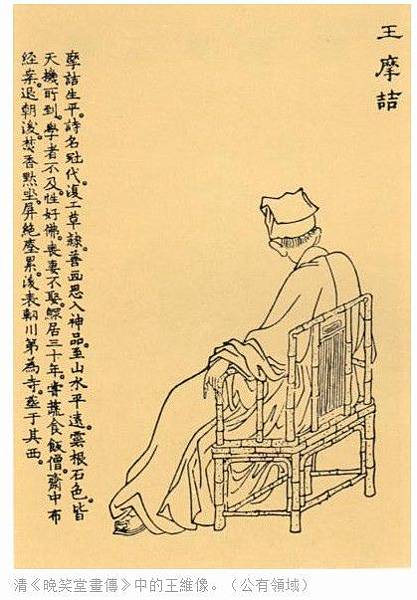 王摩詰
摩詰生平。詩名冠代。復工草隸。善画思入神品。至山水平遠。雲根石色。皆
天機所到。學者不及。性好佛。喪妻不娶。鰥居三十年。嘗蔬食飯僧。齋中布
经案。退朝後。焚香默坐。屏絶塵累。後表輞川第為寺。葬于其西。
清《晚笑堂畫傳》中的王維像。（公有領域）